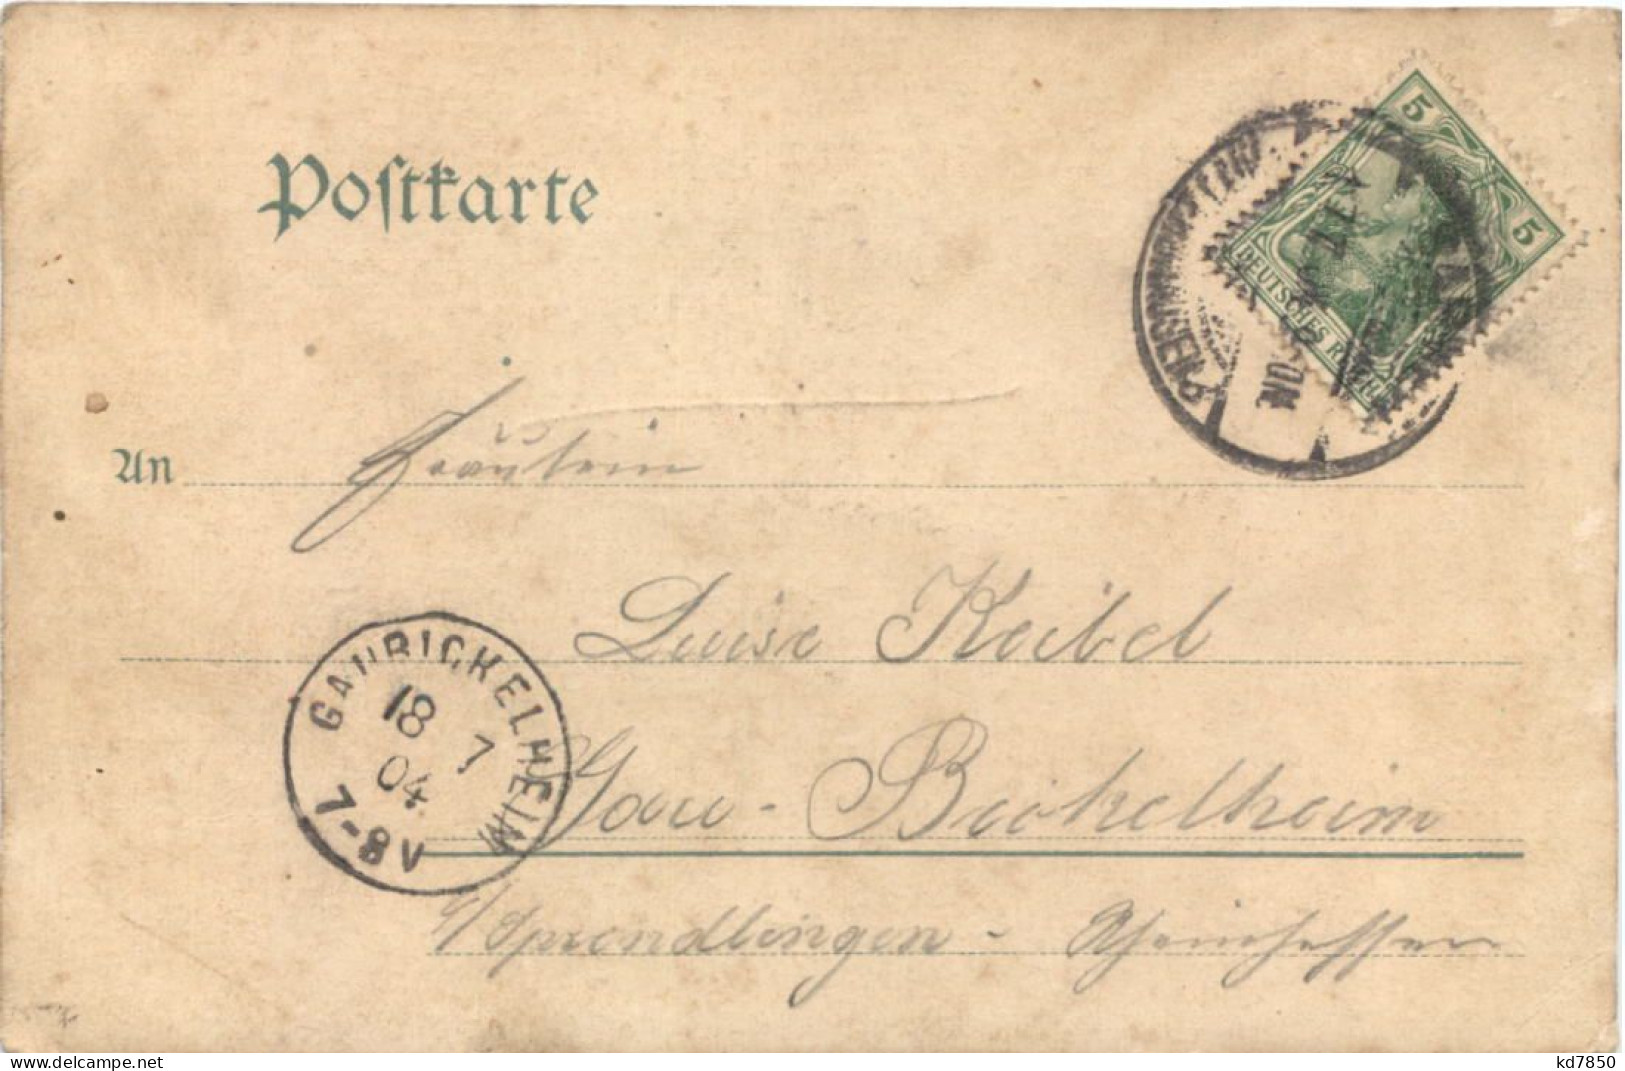 Postkarte
5
5
DEUTSCHES REICH
An Fräulein
Luise Keibel
Gau-Bickelheim
b/ Sprendlingen - Rheinhessen
GAUBICKELHEIM
18 7
04
7-8V
delcampe.net
kd7850